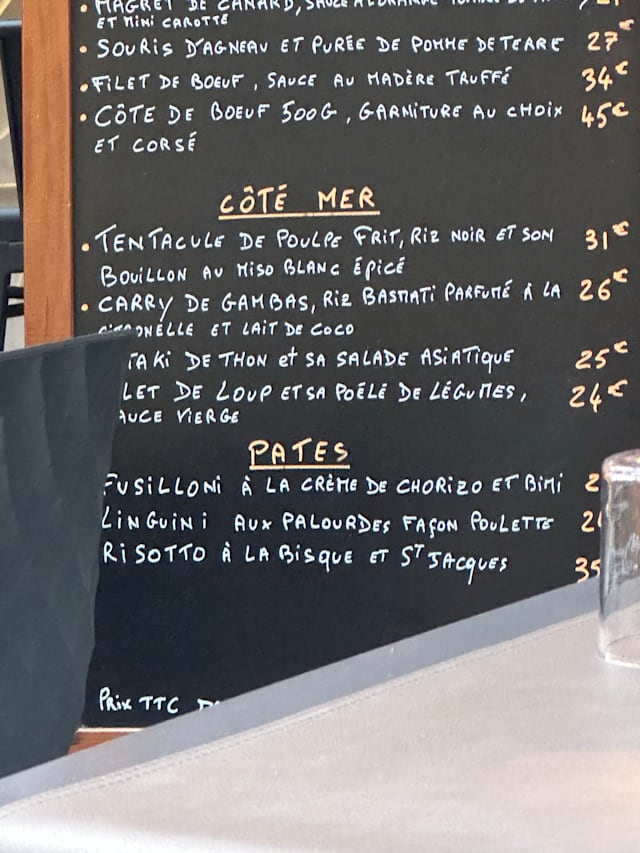 • MAGRET DE CANARD, SAUCE À L'ORANGE
ET MINI CAROTTE
• SOURIS D'AGNEAU ET PURÉE DE POMME DE TERRE 27€
• FILET DE BOEUF, SAUCE AU MADÈRE TRUFFÉ 34€
• CÔTE DE BOEUF 500G, GARNITURE AU CHOIX 45€
ET CORSÉ
CÔTÉ MER
• TENTACULE DE POULPE FRIT, RIZ NOIR ET SON 31€
BOUILLON AU MISO BLANC ÉPICÉ
• CARRY DE GAMBAS, RIZ BASMATI PARFUMÉ À LA 26€
ET LAIT DE COCO
DE THON et SA SALADE ASIATIQUE 25€
DE LOUP ET SA POÊLÉ DE LÉGUMES, 24€
VIERGE
PATES
FUSILLONI À LA CRÈME DE CHORIZO ET BIMI
LINGUINI AUX PALOURDES FAÇON POULETTE
RISOTTO À LA BISQUE ET ST JACQUES 35
PRIX TTC